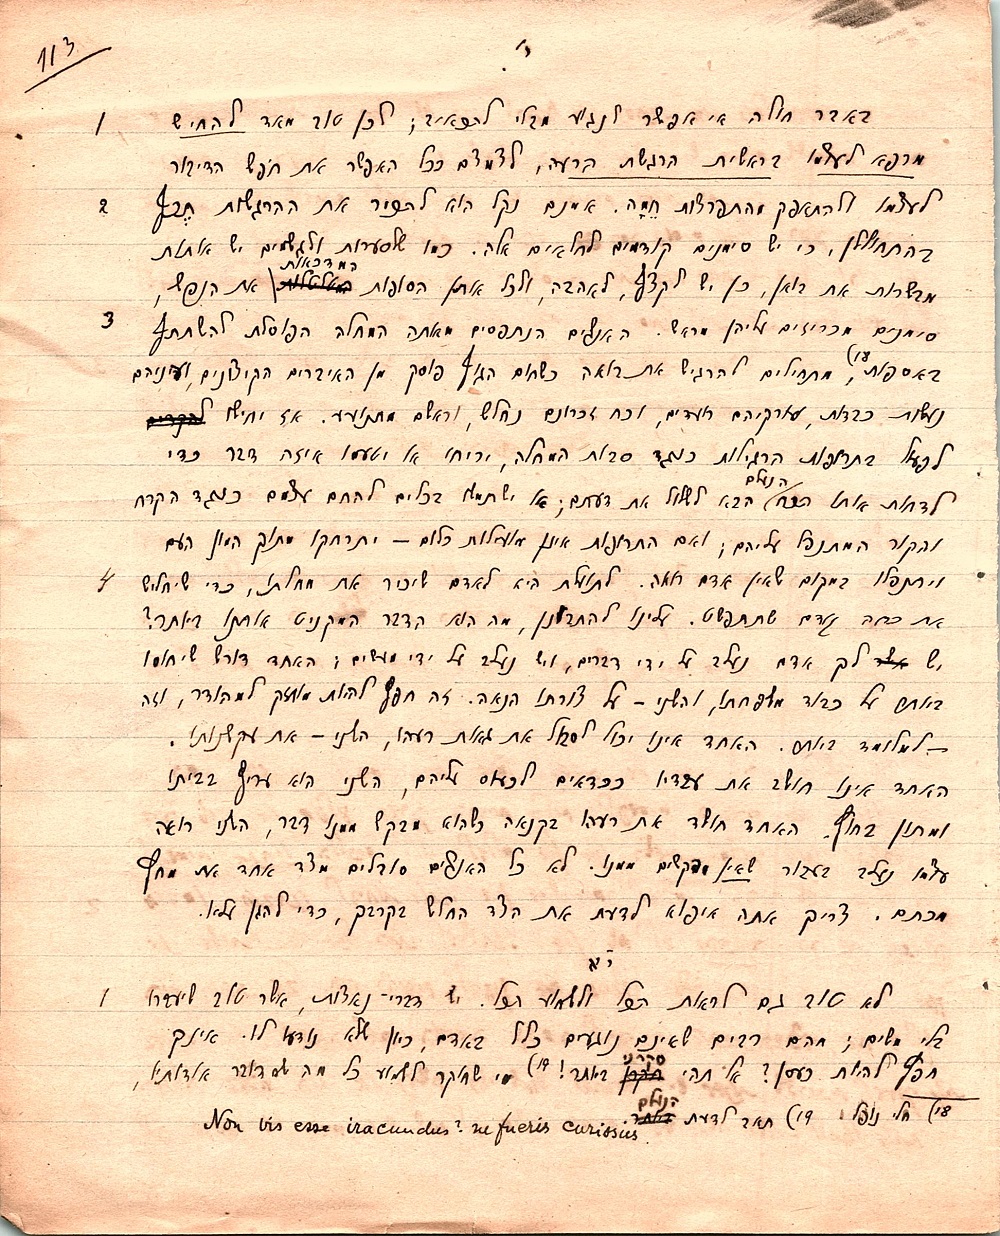 113
י.
1 באבר חולה אי אפשר לנגוע מבלי להכאיב; לכן טוב מאד להחיש
מרפא לעצמו בראשית הרגשת הרעה, לצמצם ככל האפשר את חפש הדיבור
2 לעצמו ולהתאפק מהתפרצות חֵמָה. אמנם נקל הוא להפיר את ההרגשות תֵכֶף
בהתחוללן, כי יש סימנים קודמים לחלאים אלה. כמו שלסערות ולגשמים יש אותות
המדכאות
מבשרות את בואן, כן יש לקצף, לאהבה, ולכל אותן הסופות את הנפש,
3 סימנים מכריזים עליהן מראש. האנשים הנתפסים מאתה המחלה הפוסלת להשתתף
באספות, מתחילים להרגיש את בואה כשחום הגוף פוסק מן האיברים הקיצונים, ועיניהם
נעשות כבדות, עורקיהם רועדים, וכח זכרונם נחלש, וראשם מתנועע. אז יחישו
לפעול בתרופות הרגילות כנגד סבות המחלה, יריחו או יטעמו איזה דבר כדי
הנעלם
לדחות אותו הבא לשלול את דעתם; או ישתמשו בכלים לחמם עצמם כנגד הקרח
והקור המתנפל עליהם; ואם התרופות אינן מועילות כלום – יתרחקו מתוך המון העם
4 ויתפלו במקום שאין אדם רואה. לתועלת היא לאדם שיכיר את מחלתו, כדי שיחליש
את כחה קודם שתתפשט. עלינו להתבונן, מה הוא הדבר המקניט אותנו ביותר?
יש לך אדם נעלב על ידי דברים, ויש נעלב על ידי מעשים; האחד דורש שיחוסו
ביותר על כבוד משפחתו, והשני – על צורתו הנאה. זה חפץ להיות מוחזק למהודר, וזה
– למלומד ביותר. האחד אינו יכול לסבול את גאות רעהו, השני – את עקשנותו.
האחד אינו חושב את עבדיו ככדאים לכעוס עליהם, השני הוא עריץ בביתו
ומתון בחוץ. האחד חושד את רעהו בקנאה כשהוא מבקש ממנו דבר, השני רואה
עצמו נעלב בעבור שאין מבקשים ממנו. לא כל האנשים סובלים מצד אחד את מחץ
מכתם. צריך אתה איפוא לדעת את הצד החלש בקרבך, כדי להגן עליו.
יא
1 לא טוב גם לראות הכל ולשמוע הכל. יש דברי-נאצות, אשר טוב שיעברו
בלי משים; מהם רבים שאינם נוגעים כלל באדם, כיון שלא נודעו לו. אינך
סקרני
חפץ להיות כעסן? אל תהי ביותר! מי שחוקר לשמוע כל מה שמדובר אודותיו,
הנעלם
חלי נופל תאב לדעת
Non vis esse iracundus? ne fueris curiosus.